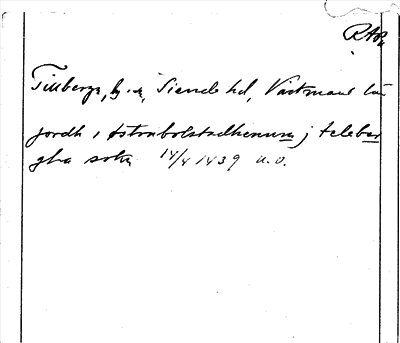 RAP
Tillberga, by o. sn, Siende hd, Västmanl. län
jordh i østrabolstadhenum j teleber
gha sokn 14/4 1439 u. o.